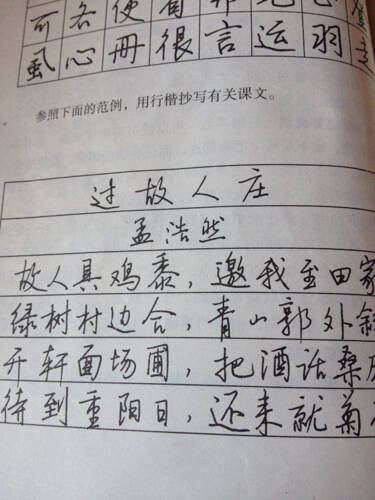 各
心册很言运羽
参照下面的范例，用行楷抄写有关课文。
过故人庄
孟浩然
故人具鸡黍，邀我至田家
绿树村边合，青山郭外斜
开轩面场圃，把酒话桑
待到重阳日，还来就菊